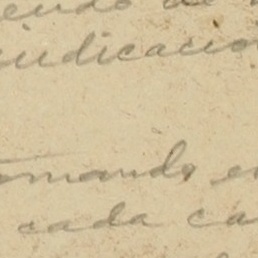 endo de
judicacio
omando e
cada ca